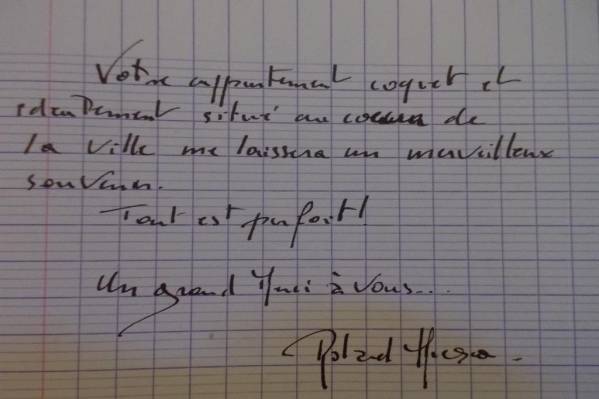 Votre appartement coquet et
idealement situé au coeur de
la ville me laissera un merveilleux
souvenir.
Tout est parfait!
Un grand Merci à vous...
Roland